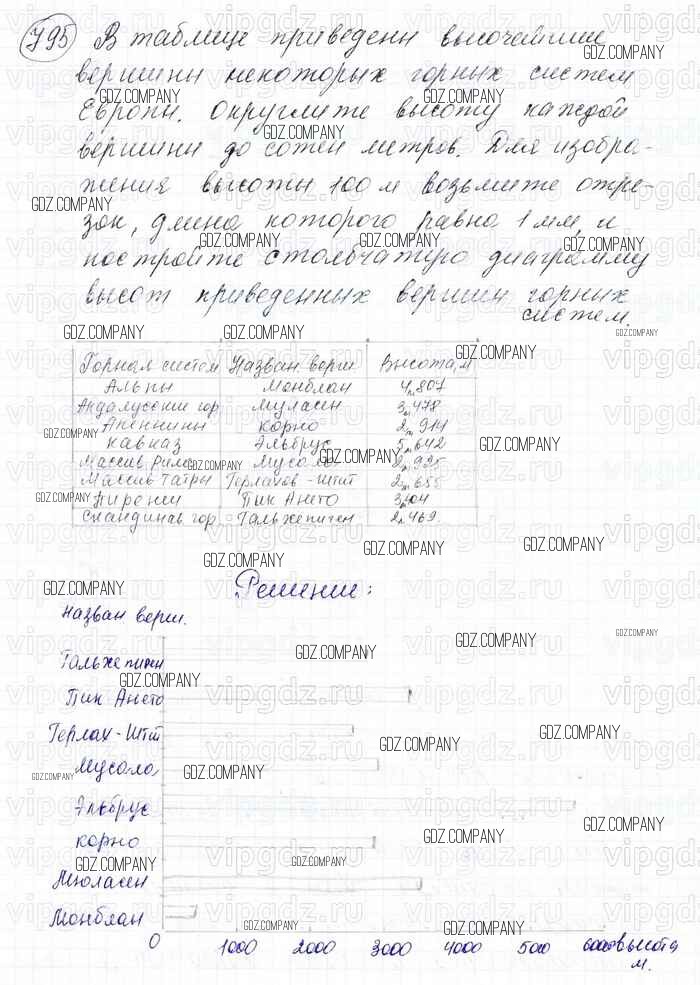 795 В таблице приведены высочайшие
вершины некоторых горных систем
Европы. Округлите высоту каждой
вершины до сотен метров. Для изобра-
жения высоты 100 м возьмите отре-
зок, длина которого равна 1 мм, и
постройте столбчатую диаграмму
высот приведенных вершин горных
систем.
GDZ.COMPANY
Горная систем Назван верш Высота, м
Альпы Монблан 4 807
Андалусские гор Муласен 3 478
Апеннины Корно 2 914
Кавказ Эльбрус 5 642
Массив Рила Мусала 2 925
Массив Татры Герлахов-Штит 2 655
Пиренеи Пик Ането 3 404
Скандинав гор Гальхепигген 2 469
Решение:
Назван верш.
Гальхепигген
Пик Ането
Герлах-Штит
Мусала
Эльбрус
Корно
Мюласен
Монблан
0 1000 2000 3000 4000 5000 6000 высота
м.
vipgdz.ru